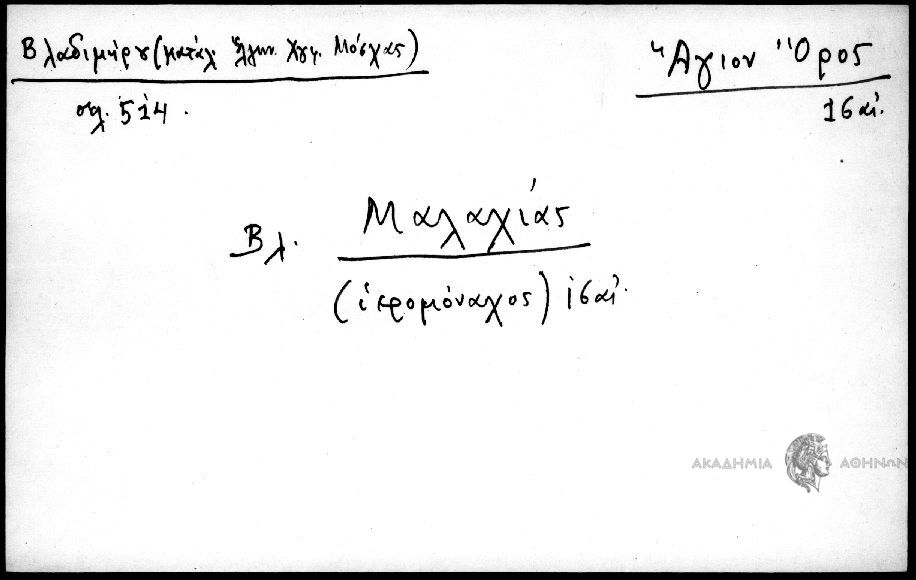 Βλαδιμήρου (κατάλ. Ἑλλην. Χγφ. Μόσχας)
σελ. 514.
Ἅγιον Ὄρος
16 αἰ.
Βλ. Μαλαχίας
(ἱερομόναχος) 16 αἰ.
ΑΚΑΔΗΜΙΑ ΑΘΗΝΩΝ